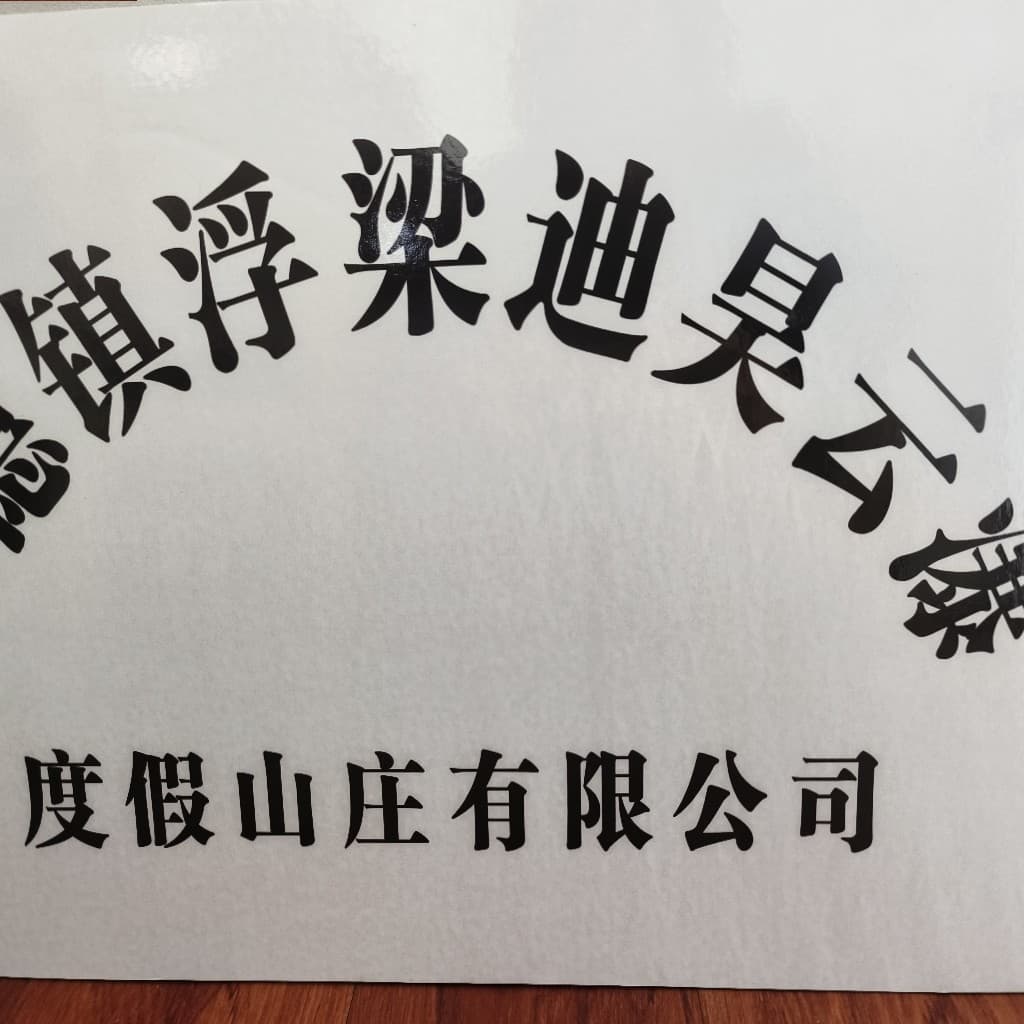 镇浮梁迪昊云
度假山庄有限公司